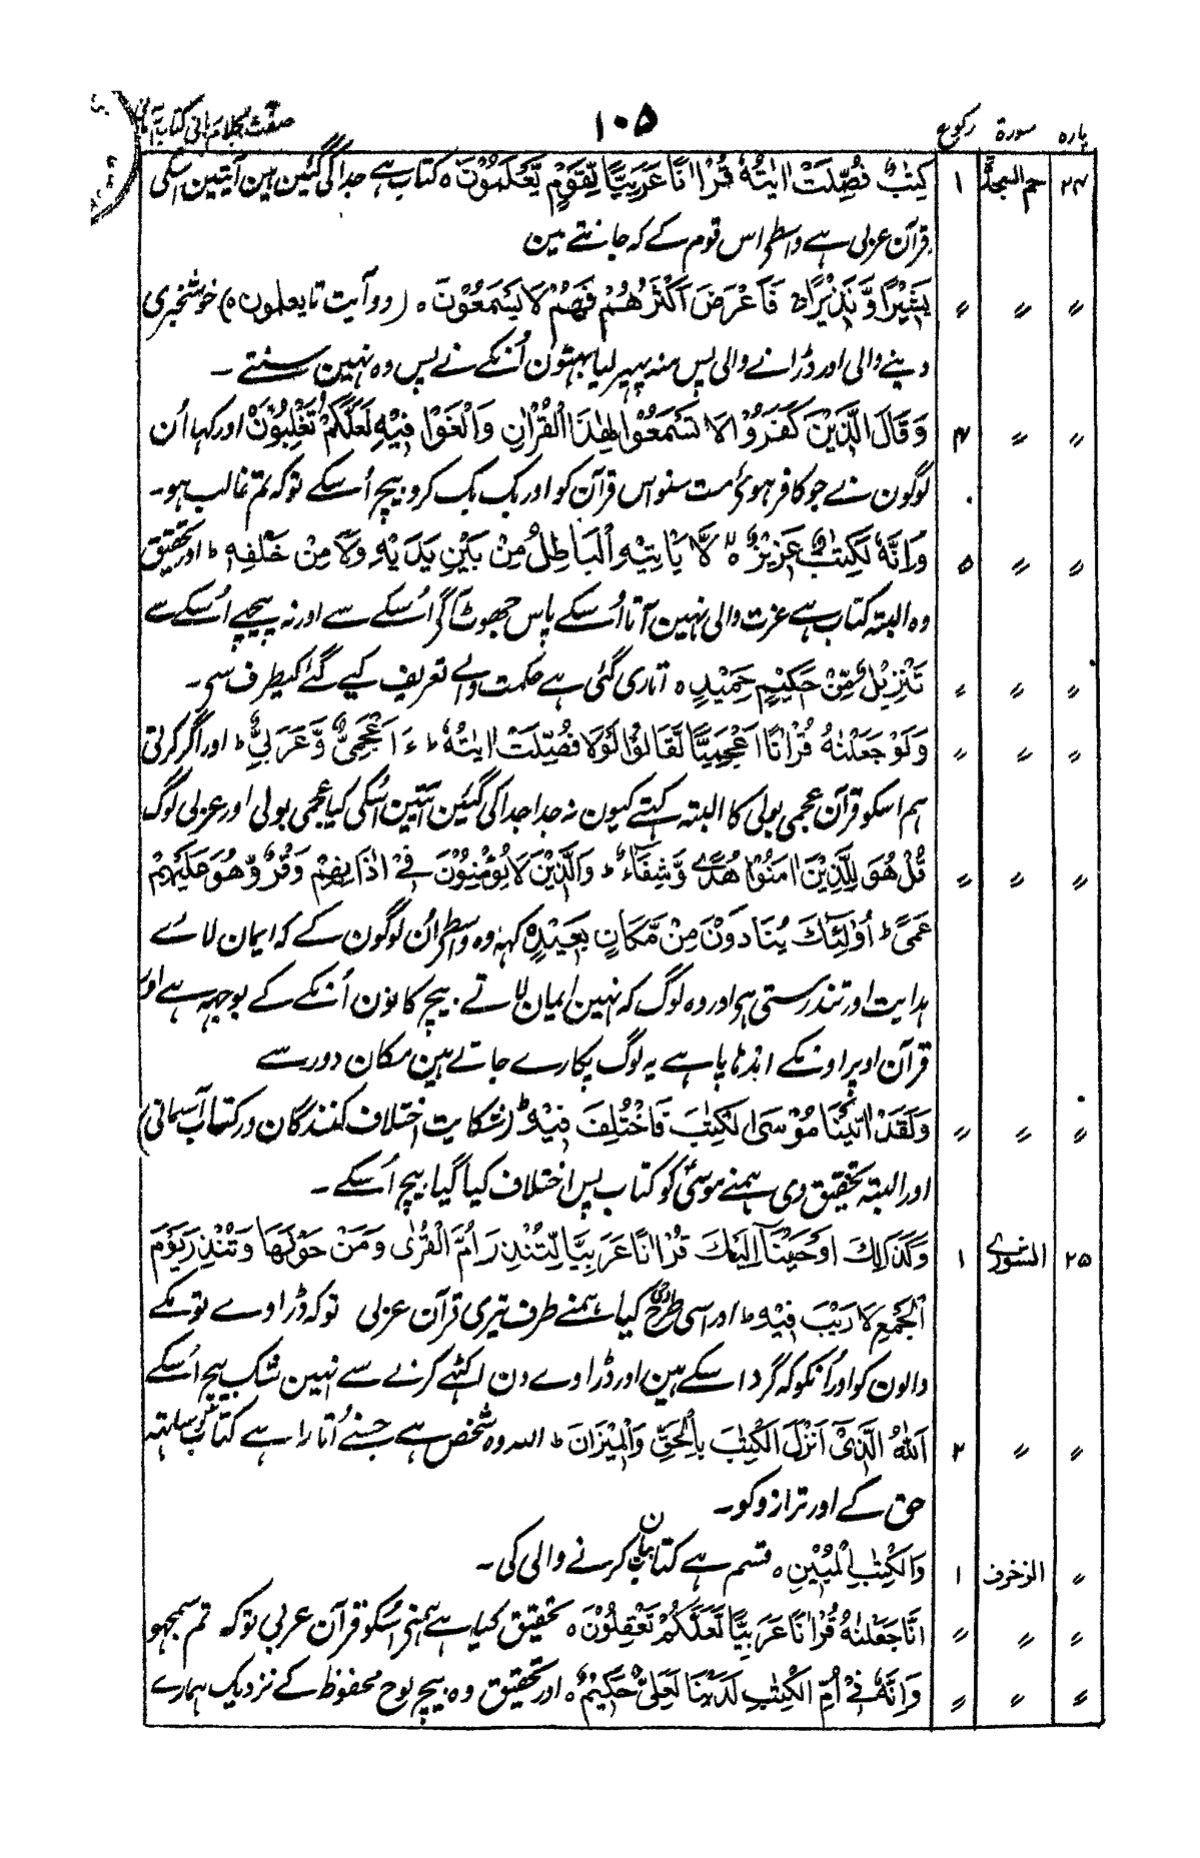 پارہ سورۃ رکوع ۱۰۵ صفت کلام ربانی کتاب
۲۴ حم السجدۃ ۱ كِتٰبٌ فُصِّلَتْ اٰیٰتُهٗ قُرْاٰنًا عَرَبِیًّا لِّقَوْمٍ یَّعْلَمُوْنَ ہ کتاب ہے جدا کی گئین ہین آیتین اسکی
قرآن عربی ہے واسطے اس قوم کے کہ جانتے ہین
〃 〃 〃 بَشِیْرًا وَّ نَذِیْرًا ج فَاَعْرَضَ اَكْثَرُهُمْ فَهُمْ لَا یَسْمَعُوْنَ ہ (دو آیت تا یعلمون ہ) خوشخبری
دینے والی اور ڈرانے والی پس منہ پھیر لیا بہتون اُنکے نے پس وہ نہین سنتے ۔
〃 〃 ۴ وَقَالَ الَّذِیْنَ كَفَرُوْا لَا تَسْمَعُوْا لِهٰذَا الْقُرْاٰنِ وَالْغَوْا فِیْهِ لَعَلَّكُمْ تَغْلِبُوْنَ اور کہا اُن
لوگون نے جو کافر ہوئے مت سنو اس قرآن کو اور بک بک کرو بیچ اُسکے تو کہ تم غالب ہو۔
〃 〃 ۵ وَاِنَّهٗ لَكِتٰبٌ عَزِیْزٌ ہ لَّا یَاْتِیْهِ الْبَاطِلُ مِنْ بَیْنِ یَدَیْهِ وَلَا مِنْ خَلْفِهٖ ط اور تحقیق
وہ البتہ کتاب ہے عزت والی نہین آتا اُسکے پاس جھوٹ آگے اُسکے سے اور نہ پیچھے اُسکے سے
〃 〃 〃 تَنْزِیْلٌ مِّنْ حَكِیْمٍ حَمِیْدٍ ہ اتاری گئی ہے حکمت والے تعریف کیے گئے کیطرف سے ۔
〃 〃 〃 وَلَوْ جَعَلْنٰهُ قُرْاٰنًا اَعْجَمِیًّا لَّقَالُوْا لَوْلَا فُصِّلَتْ اٰیٰتُهٗ ط ءَاَعْجَمِیٌّ وَّعَرَبِیٌّ ط اور اگر کرتے
ہم اسکو قرآن عجمی بولی کا البتہ کہتے کیون نہ جدا جدا کی گئین آیتین اُسکی کیا عجمی بولی اور عربی لوگ
〃 〃 〃 قُلْ هُوَ لِلَّذِیْنَ اٰمَنُوْا هُدًی وَّشِفَآءٌ ط وَالَّذِیْنَ لَا یُؤْمِنُوْنَ فِیْ اٰذَانِهِمْ وَقْرٌ وَّهُوَ عَلَیْهِمْ
عَمًی ط اُولٰٓئِكَ یُنَادَوْنَ مِنْ مَّكَانٍ بَعِیْدٍ ہ کہہ وہ واسطے اُن لوگون کے کہ ایمان لائے
ہدایت اور تندرستی ہے اور وہ لوگ کہ نہین ایمان لاتے بیچ کانون اُنکے کے بوجھ ہے اور
قرآن اوپر اونکے اندھاپا ہے یہ لوگ پکارے جاتے ہین مکان دور سے
〃 〃 〃 وَلَقَدْ اٰتَیْنَا مُوْسَی الْكِتٰبَ فَاخْتُلِفَ فِیْهِ ط (شکایت اختلاف کنندگان در کتاب آسمانی)
اور البتہ تحقیق دی ہمنے موسیٰ کو کتاب پس اختلاف کیا گیا بیچ اُسکے ۔
۲۵ الشوریٰ ۱ وَكَذٰلِكَ اَوْحَیْنَآ اِلَیْكَ قُرْاٰنًا عَرَبِیًّا لِّتُنْذِرَ اُمَّ الْقُرٰی وَمَنْ حَوْلَهَا وَتُنْذِرَ یَوْمَ
الْجَمْعِ لَا رَیْبَ فِیْهِ ط اور اسی طرح کیا ہمنے طرف تیری قرآن عربی تو کہ ڈراوے تو مکے
والون کو اور اُنکو کہ گرد اسکے ہین اور ڈراوے دن اکٹھے کرنے سے نہین شک بیچ اُسکے
〃 〃 ۲ اَللّٰهُ الَّذِیْٓ اَنْزَلَ الْكِتٰبَ بِالْحَقِّ وَالْمِیْزَانَ ط اللہ وہ شخص ہے جسنے اُتارا ہے کتاب کو ساتھ
حق کے اور ترازو کو ۔
〃 الزخرف ۱ وَالْكِتٰبِ الْمُبِیْنِ ہ قسم ہے کتاب بیان کرنے والی کی ۔
〃 〃 〃 اِنَّا جَعَلْنٰهُ قُرْاٰنًا عَرَبِیًّا لَّعَلَّكُمْ تَعْقِلُوْنَ ہ تحقیق کیا ہے ہمنے اُسکو قرآن عربی تو کہ تم سمجھو
〃 〃 〃 وَاِنَّهٗ فِیْٓ اُمِّ الْكِتٰبِ لَدَیْنَا لَعَلِیٌّ حَكِیْمٌ ہ اور تحقیق وہ بیچ لوح محفوظ کے نزدیک ہمارے